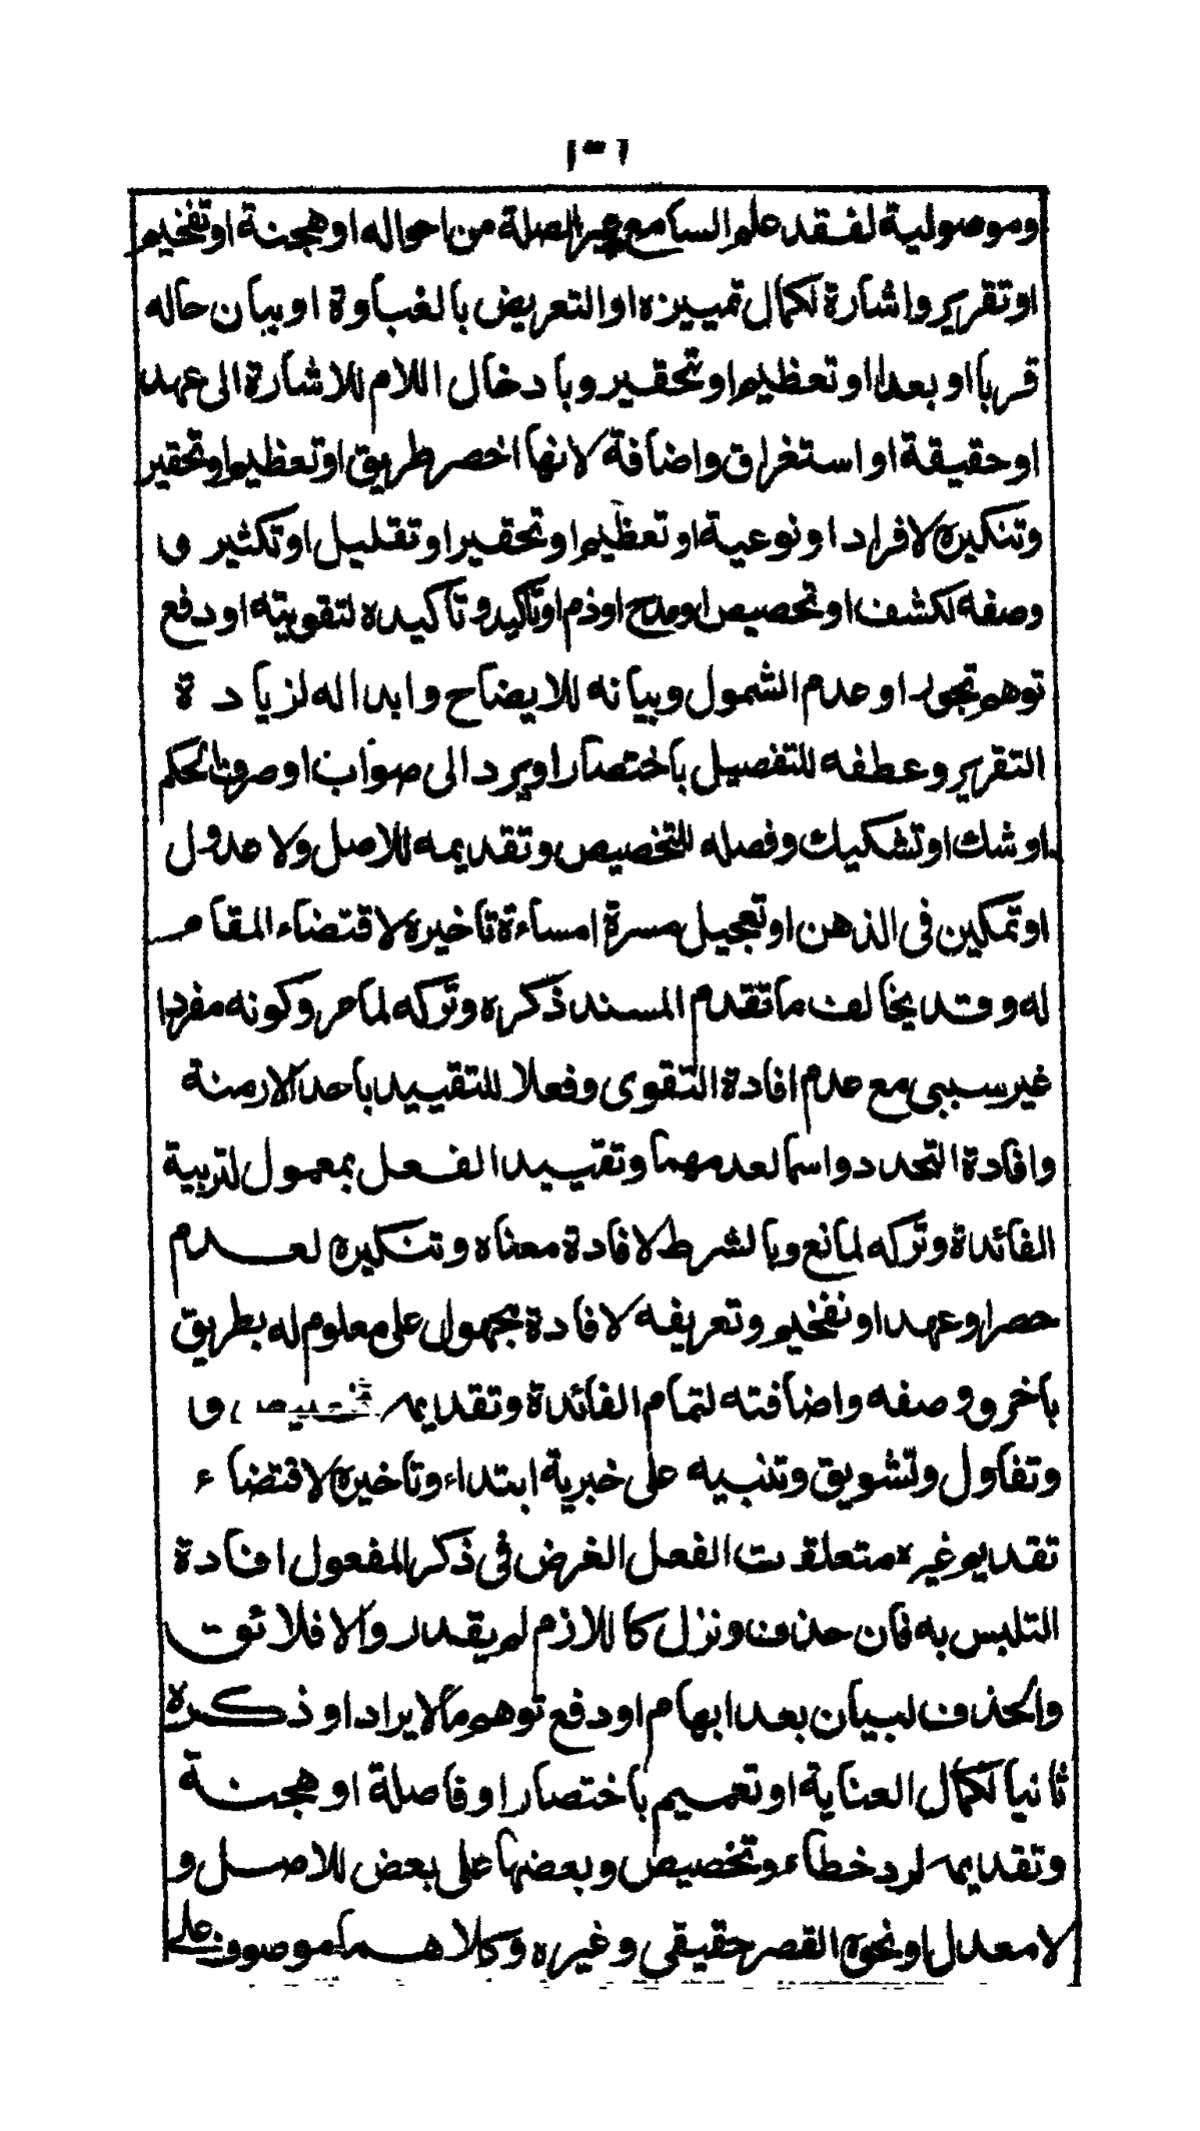 ١٣٦
وموصولية لفقد علم السامع غير الصلة من احواله او هجنة او تفخيم
او تقرير واشارة لكمال تمييزه او التعريض بالغباوة او بيان حاله
قربا او بعدا او تعظيم او تحقير وبادخال اللام للاشارة الى عهد
او حقيقة او استغراق واضافة لانها اخصر طريق او تعظيم او تحقير
وتنكيره لافراد او نوعية او تعظيم او تحقير او تقليل او تكثير و
وصفه لكشف او تخصيص او مدح او ذم او تاكيد وتاكيده لتقويته او دفع
توهم تجوز او عدم الشمول وبيانه للايضاح وابداله لزيادة
التقرير وعطفه للتفصيل باختصار او يرد الى صواب او صرف الحكم
او شك او تشكيك وفصله للتخصيص وتقديمه للاصل ولا عدول
او تمكين فى الذهن او تعجيل مسرة امساءة تاخيره لاقتضاء المقام
له وقد يخالف ما تقدم المسند ذكره وتركه لما مر وكونه مفردا
غير سببى مع عدم افادة التقوى وفعلا للتقييد باحد الازمنة
وافادة التجدد واسما لعدمهما وتقييد الفعل بمعمول لتربية
الفائدة وتركه لمانع وبالشرط لافادة معناه وتنكيره لعدم
حصر او عهد او تفخيم وتعريفه لافادة مجهول على معلوم له بطريق
باخر ووصفه واضافته لتمام الفائدة وتقديمه تخصيص و
وتفاول وتشويق وتنبيه على خبرية ابتداء وتاخيره لاقتضاء
تقديم غيره متعلقات الفعل الغرض فى ذكر المفعول افادة
التلبس به فان حذف ونزل كاللازم لم يقدر والا فلائق
والحذف لبيان بعد ابهام او دفع توهم ما لا يراد او ذكره
ثانيا لكمال العناية او تعميم باختصار او فاصلة او هجنة
وتقديمه لرد خطاء وتخصيص وبعضها على بعض للاصل و
لا معدل او نحوه القصر حقيقى وغيره وكلاهما موصوف على